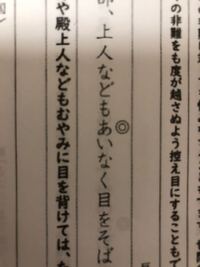 の非難をも度が越さぬよう控え目にすることもで
◎
命、上人などもあいなく目をそば
や殿上人などもむやみに目を背けては、